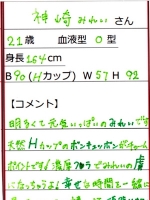 神崎みれい さん
21歳 血液型 O型
身長154cm
B90(Hカップ) W57 H92
【コメント】
明るくて元気いっぱいのみれいです
天然Hカップのボンキュッボンがチャーム
ポイントです♪濃厚フロラでみれいの虜
になっちゃうよ!幸せな時間を一緒に